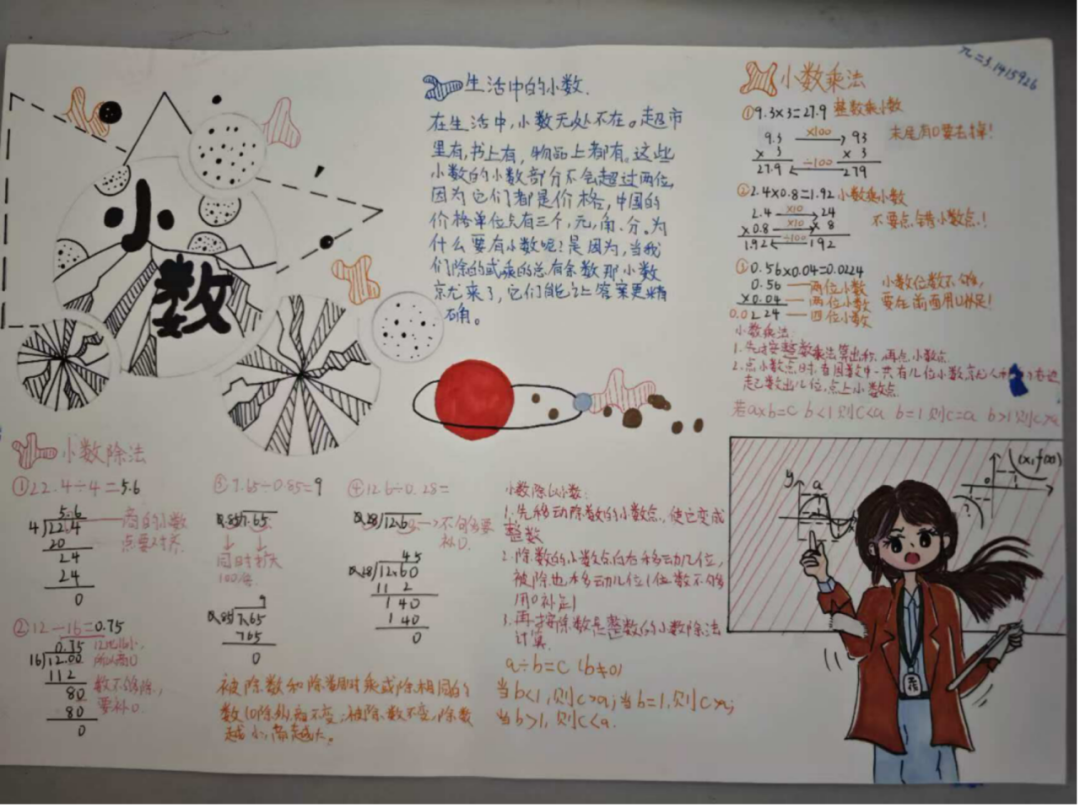 小
数
生活中的小数.
在生活中,小数无处不在。超市
里有,书上有,物品上都有。这些
小数的小数部分不会超过两位,
因为它们都是价格,中国的
价格单位只有三个,元,角、分。为
什么要有小数呢?是因为,当我
们除的或乘的总有余数那小数
就来了,它们能让答案更精
确。
小数乘法
π=3.1415926
①9.3×3=27.9 整数乘小数
9.3 ×100 93
× 3 × 3
27.9 ÷100 279
末尾有0要去掉!
②2.4×0.8=1.92 小数乘小数
2.4 ×10 24
×0.8 ×10 × 8
1.92 ÷100 192
不要点错小数点.!
③0.56×0.04=0.0224
0.56 — 两位小数
×0.04 — 两位小数
0.0224 — 四位小数
小数位数不够,
要在前面用0补足!
小数乘法:
1.先按整数乘法算出积,再点小数点
2.点小数点时,看因数中一共有几位小数,就从
起数出几位,点上小数点.
若a×b=c b<1则c<a b=1则c=a b>1则c>a
小数除法
①22.4÷4=5.6
5.6
4 22.4
20
24
24
0
商的小数
点要对齐.
②12—16=0.75
0.75
16 12.00
112
80
80
0
12比16小,
所以商0
数不够除,
要补0.
③7.65÷0.85=9
0.85 7.65
同时扩大
100倍
9
0.85 7.65
765
0
④12.6÷0.28=
0.28 12.6
不够要
补0.
45
0.28 12.60
11 2
1 40
1 40
0
被除数和除数同时乘或除相同的
数(0除外),商不变;被除数不变,除数
越小,商越大.
小数除以小数:
1.先移动除数的小数点,使它变成
整数
2.除数的小数点向右移动几位,
被除也移动几位(位数不够
用0补足)
3.再按除数是整数的小数除法
计算
a÷b=c (b≠0)
当b<1,则c>a;当b=1,则c>a;
当b>1,则c<a.
y
a
(x,f(x))